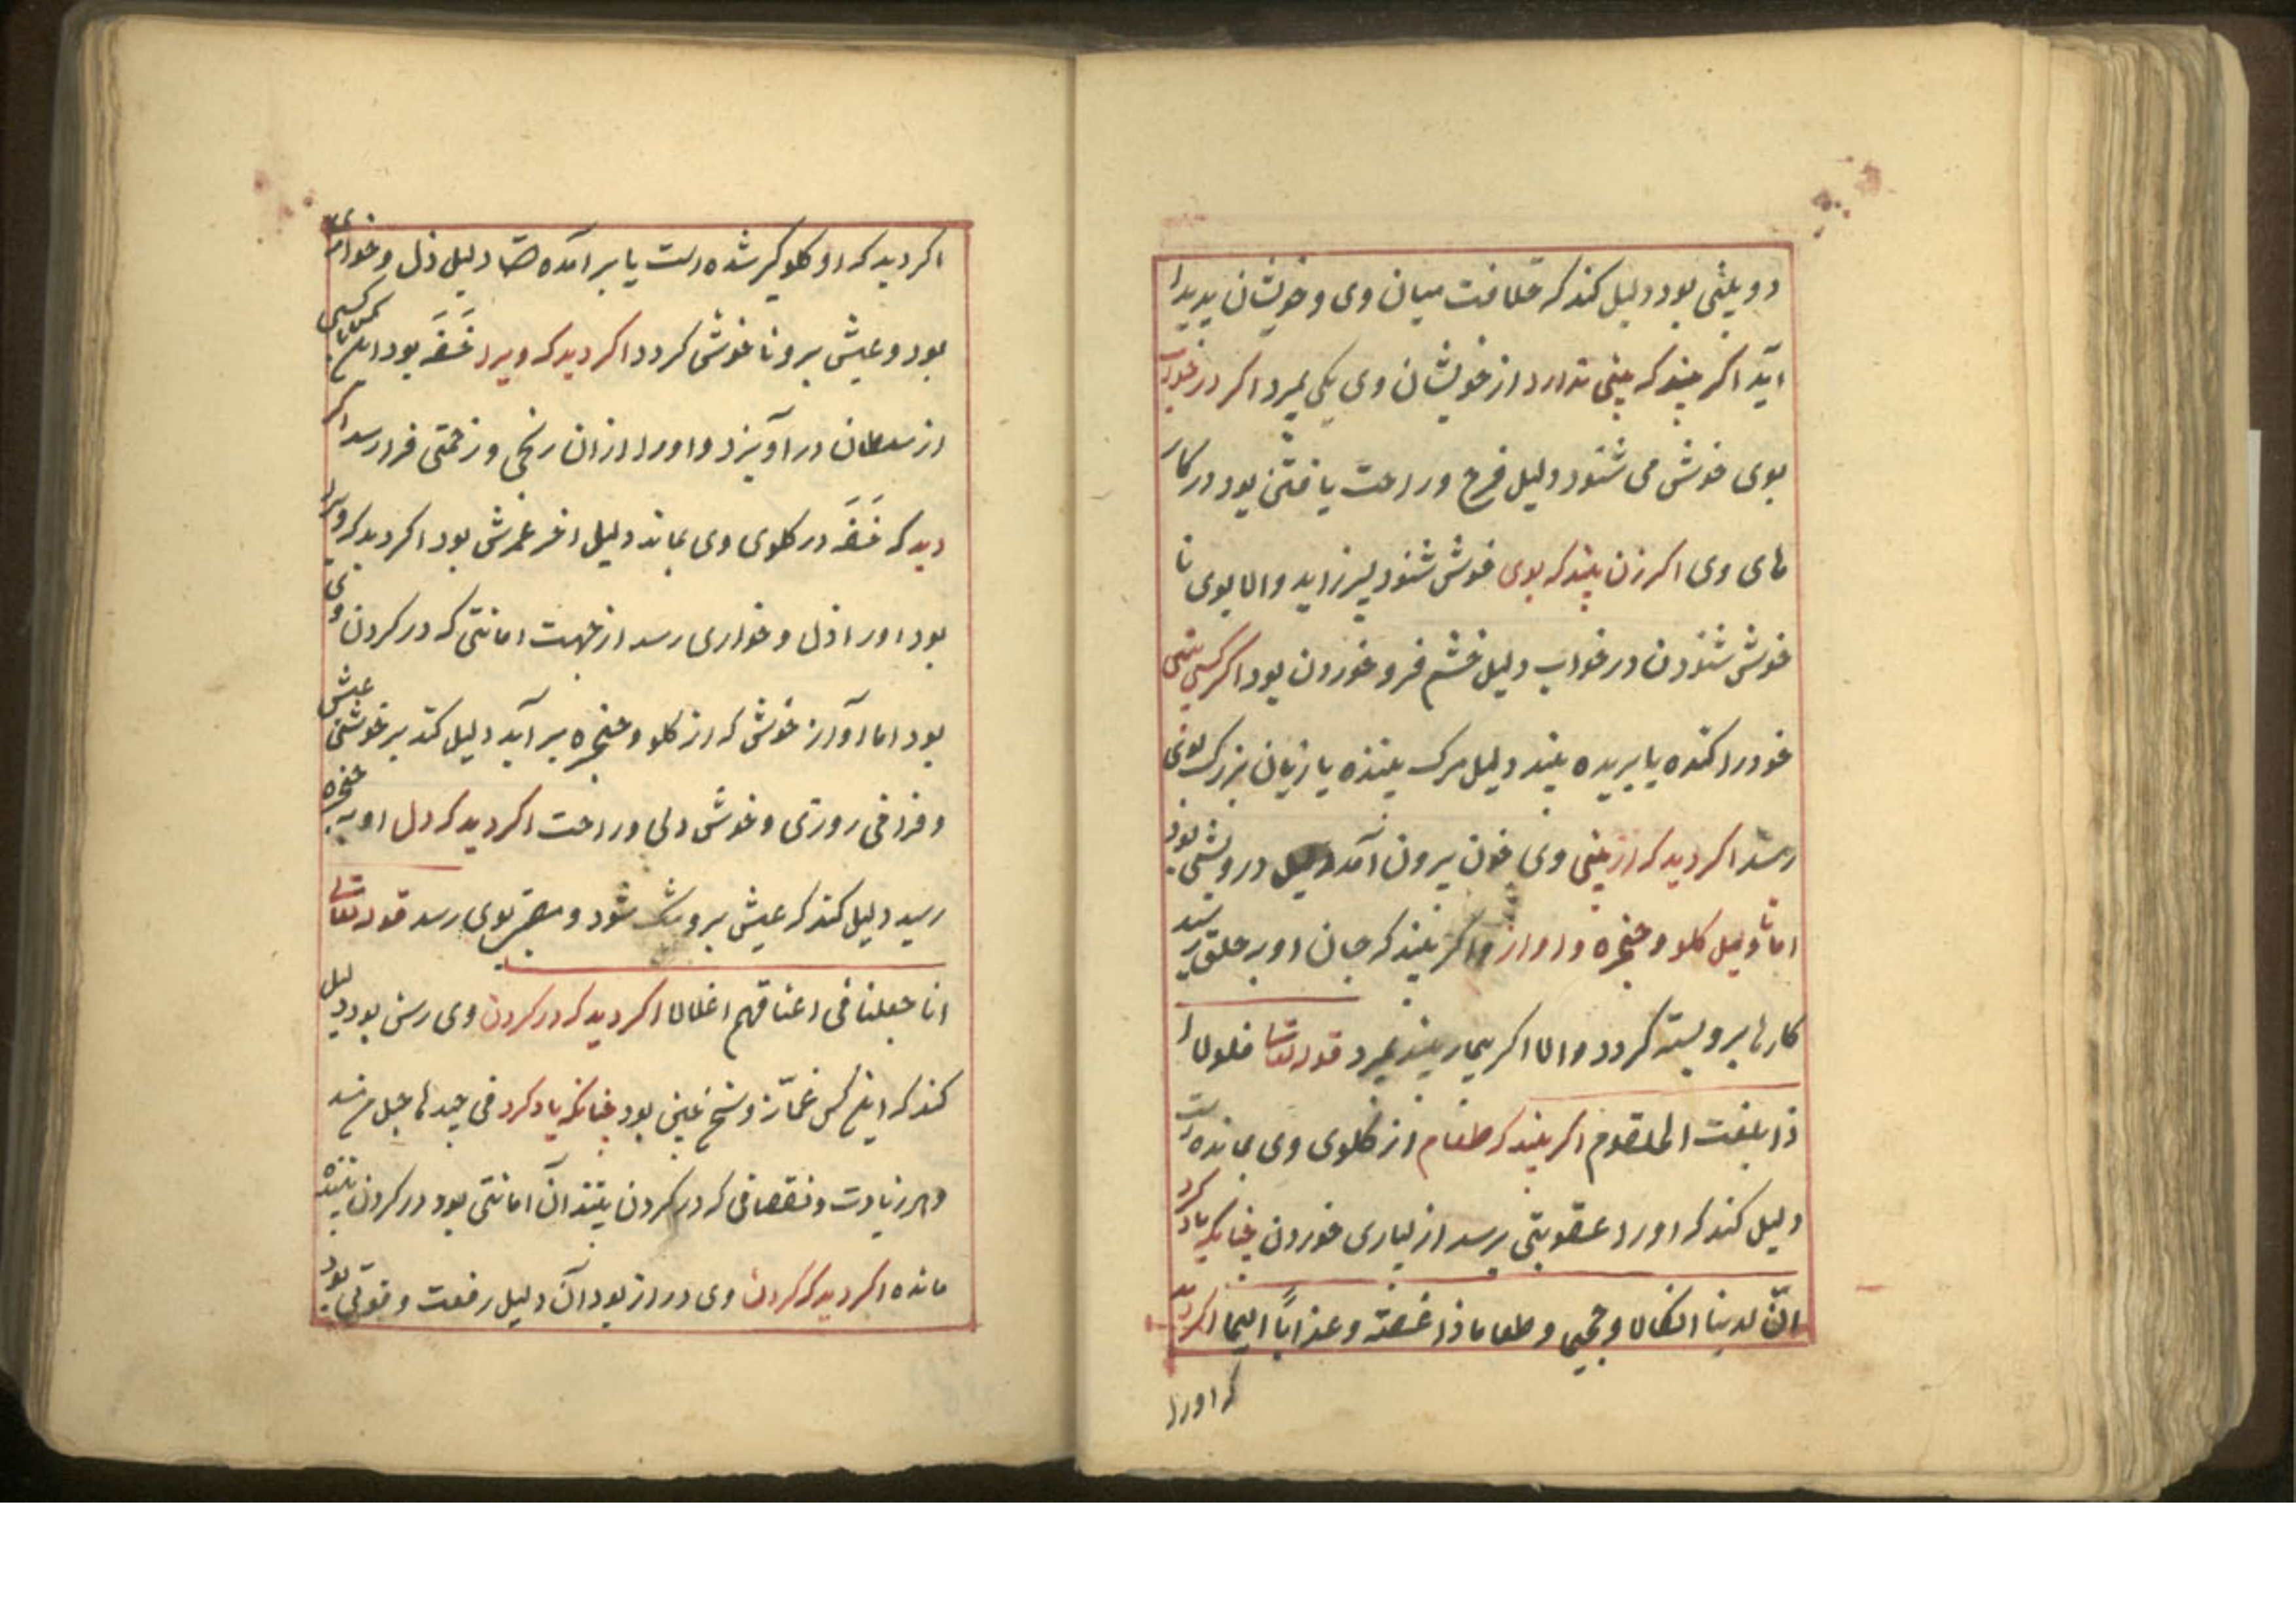 دو بینی بود دلیل کند که خلافت میان وی و خویشان پدیدا
آید اکر بیند که بینی ندارد از خویشان وی یکی بمیرد اکر در خواب
بوی خوش می شنود دلیل فرح و راحت یافتن بود در کار
های وی اکر زن بیند که بوی خوش شنود پسر زاید و الا بوی نا
خوش شنودن در خواب دلیل خشم فرو خوردن بود اکر کسی بینی
خود را کنده یا بریده بیند دلیل مرک بیننده یا زیان بزرک بوی
رسد اکر دید که از بینی وی خون بیرون آمد دلیل درویشی بود
اما تاویل کلو و حنجره و اواز و اکر بیند که جان او به حلق رسید
کارها برو بسته کردد و الا اکر بیمار بیند بمیرد قوله تعالی فلولا ا
ذا بلغت الحلقوم اکر بیند که طعام از کلوی وی بمانده است
دلیل کند که او را عقوبتی برسد از بسیاری خوردن چنانکه یاد کرد
انّ لدینا انکالا و جحیما و طعاما ذا غصّة و عذابًا الیما اکر دید
که او را
اکر دید که او کلوکیر شده است یا بر آمده دلیل ذل و خواری
بود و عیش برو ناخوش کردد اکر دید که ویرا غصّه بود این کس با کسی
از سلطان در آویزد و او را از ان رنجی و زحمتی فرا رسد اکر
دید که غصّه در کلوی وی بماند دلیل اخر عمرش بود اکر دید که ویرا
بود او را ذل و خواری رسد از جهت امانتی که در کردن وی
بود اما آواز خوش که از کلو و حنجره بر آید دلیل کند بر خوشی عیش
و فراخی روزی و خوش دلی و راحت اکر دید که دل او به حنجره
رسید دلیل کند که عیش برو تنک شود و مضرّتی بوی رسد قوله تعالی
انا جعلنا فی اعناقهم اغلالا اکر دید که در کردن وی رسن بود دلیل
کند که این کس غمّاز و سخن چین بود چنانکه یاد کرد فی جیدها حبل من مسد
و هر زیادت و نقصانی که در کردن بیند آن امانتی بود در کردن بیننده
مانده اکر دید که کردن وی دراز بود آن دلیل رفعت و قوّتی بود